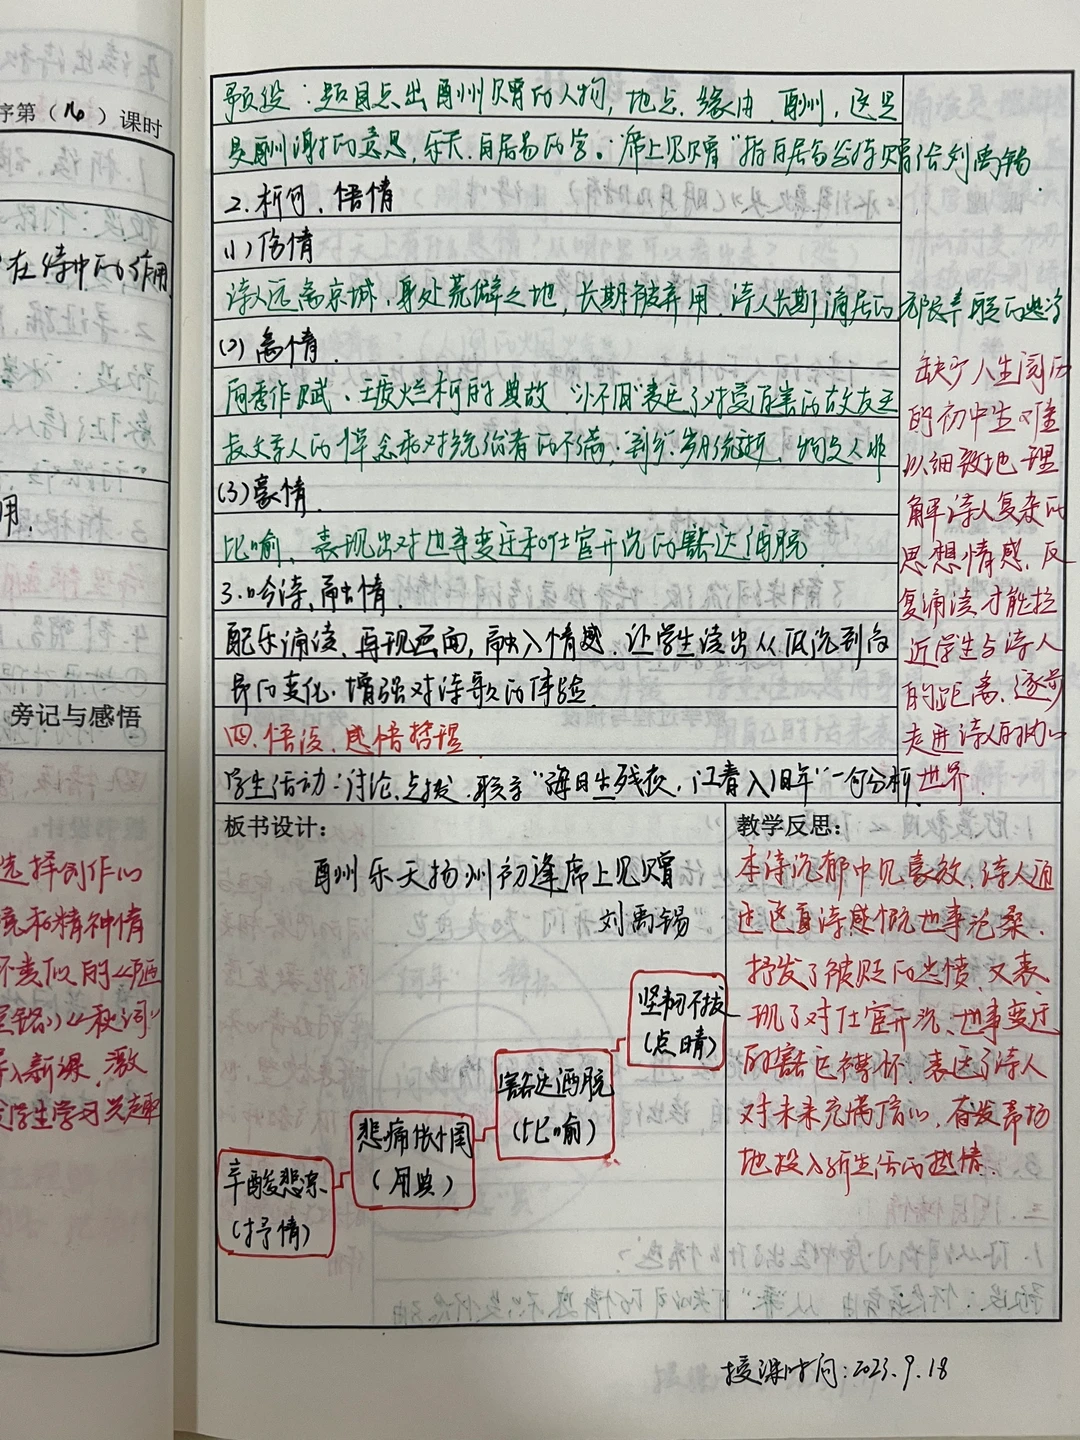 序第（16）课时
在诗中的作用
用.
旁记与感悟
选择创作心
境和精神情
不类似的《陋
室铭》《秋词》
导入新课，激
发学生学习兴趣
预设：题目点出酬州赠的人物，地点，缘由，酬州，这里
是酬谢的意思，乐天，白居易的字。“席上见赠”指白居易答诗赠给刘禹锡
2. 析句、悟情
(1) 伤情
诗人远离京城，身处荒僻之地，长期被弃用，诗人长期谪居的
(2) 离情.
用秀作赋、王质烂柯的典故
亲人的悼念和对统治者的不满
(3) 豪情.
比喻，表现出对世事变迁和仕宦升沉的豁达洒脱
3. 吟诗、融情.
配乐诵读，再现画面，融入情感，让学生读出从低沉到高
昂的变化，增强对诗歌的体验.
四. 悟读，感悟哲理
学生活动：讨论，点拨，联系“海日生残夜，江春入旧年”一句分析.
缺少人生阅历
的初中生难
以细致地理
解诗人复杂的
思想情感，反
复诵读才能拉
近学生与诗人
的距离，逐步
走进诗人的内心
世界.
板书设计：
酬州乐天扬州初逢席上见赠
刘禹锡
坚韧不拔
(点晴)
豁达洒脱
(比喻)
悲痛怅惘
(用典)
辛酸悲凉
(抒情)
教学反思：
本诗沉郁中见豪放，诗人通
过这首诗感慨世事沧桑，
抒发了被贬的悲情，又表
现了对仕宦升沉、世事变迁
的豁达襟怀，表达了诗人
对未来充满信心，奋发昂扬
地投入新生活的热情.
授课时间：2023.9.18